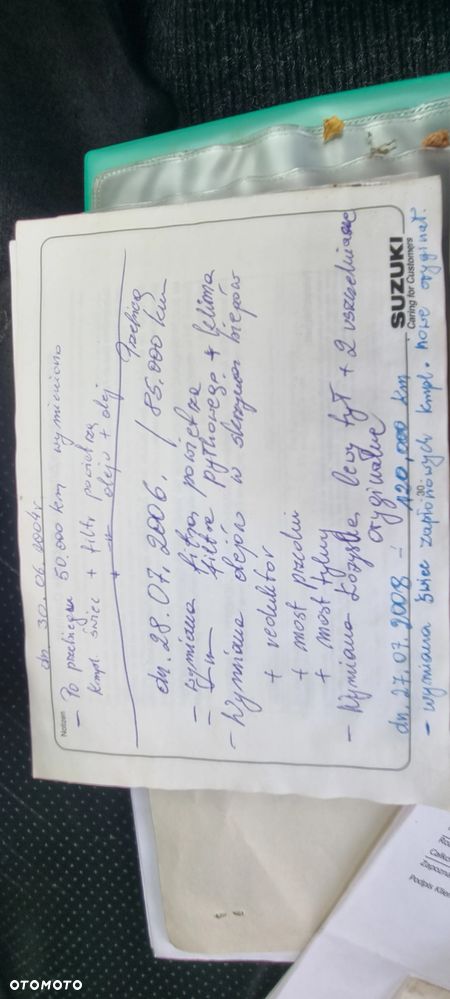 Notizen
dn. 30.06.2004r.
- Po przebiegu 50.000 km wymieniono
kmpl. świec + filtr powietrza
+ —„— oleju + olej
Przebieg
dn. 28.07.2006. / 85.000 km
- Wymiana filtra powietrza
= —„— filtra pyłkowego + klima
- Wymiana olejów w skrzyni biegów
+ reduktor
+ most przedni
+ most tylny
- Wymiana łożyska lewy tył + 2 uszczelniacze
oryginalne
SUZUKI
Caring for Customers
30
dn. 27.07.2008 - 120,000 km
- wymiana świec zapłonowych kmpl. nowe oryginał.
Podpis Klie
OTOMOTO